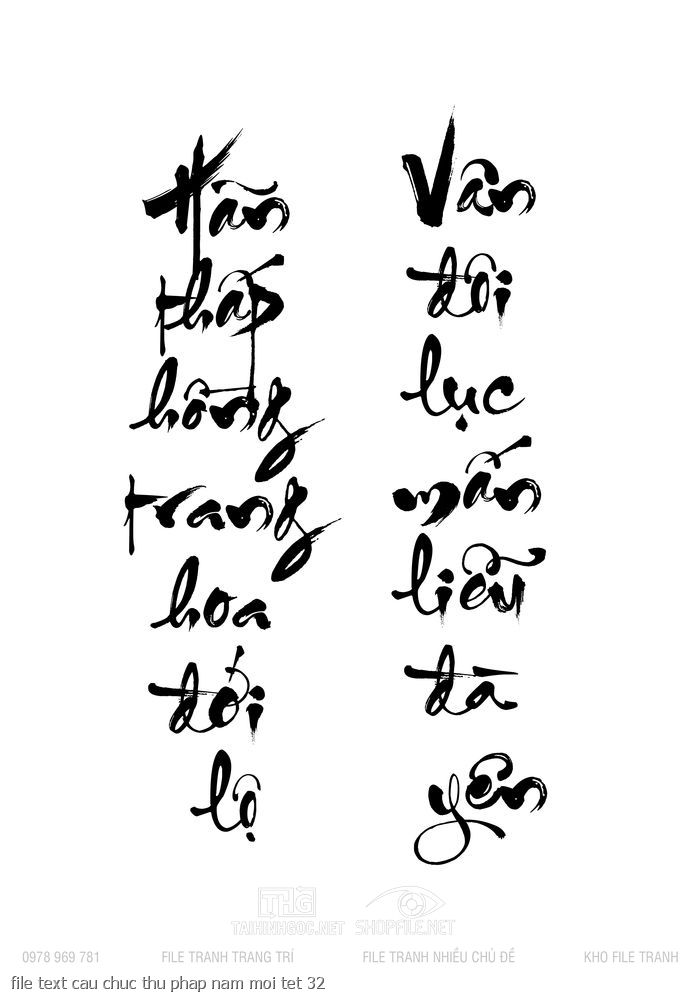 Hãn
thấp
hồng
trang
hoa
đới
lộ
Vân
đôi
lục
mấn
liễu
đà
yên
THG
TAIHINHGOC.NET
SHOPFILE.NET
0978 969 781
FILE TRANH TRANG TRÍ
FILE TRANH NHIỀU CHỦ ĐỀ
KHO FILE TRANH
file text cau chuc thu phap nam moi tet 32